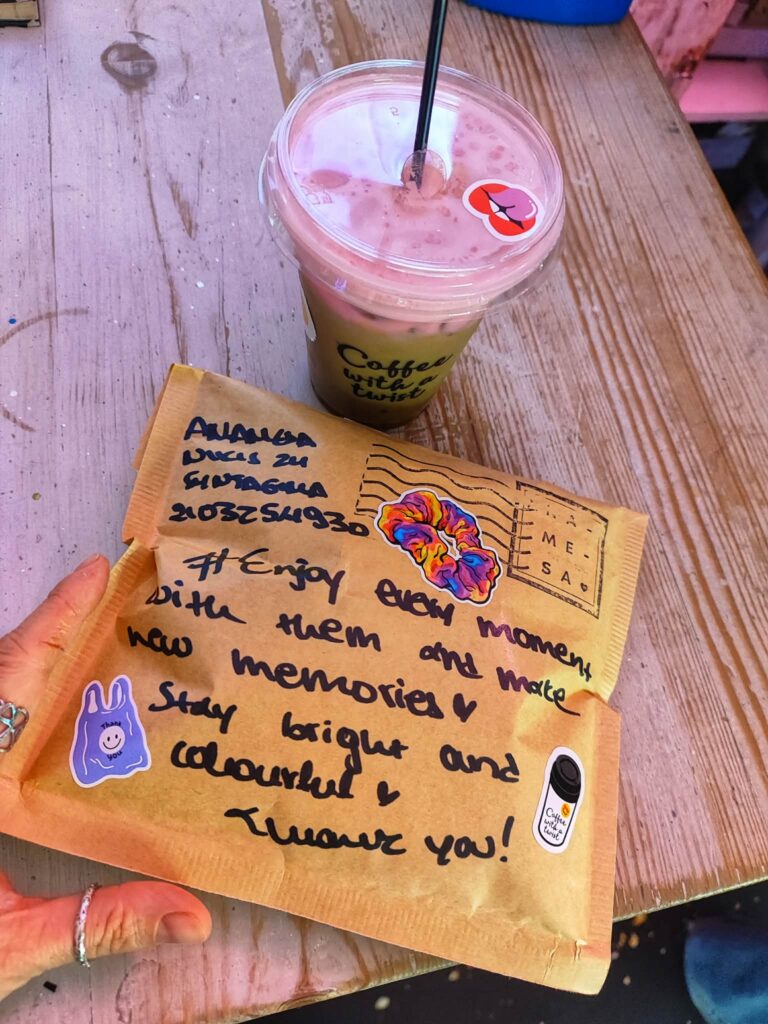 Coffee
with a
twist
2103254930
ME-
SA♥
#Enjoy every moment
with them and make
new memories ♥
Stay bright and
colourful ♥
Thank you!
Thank
you
Coffee
with a
twist